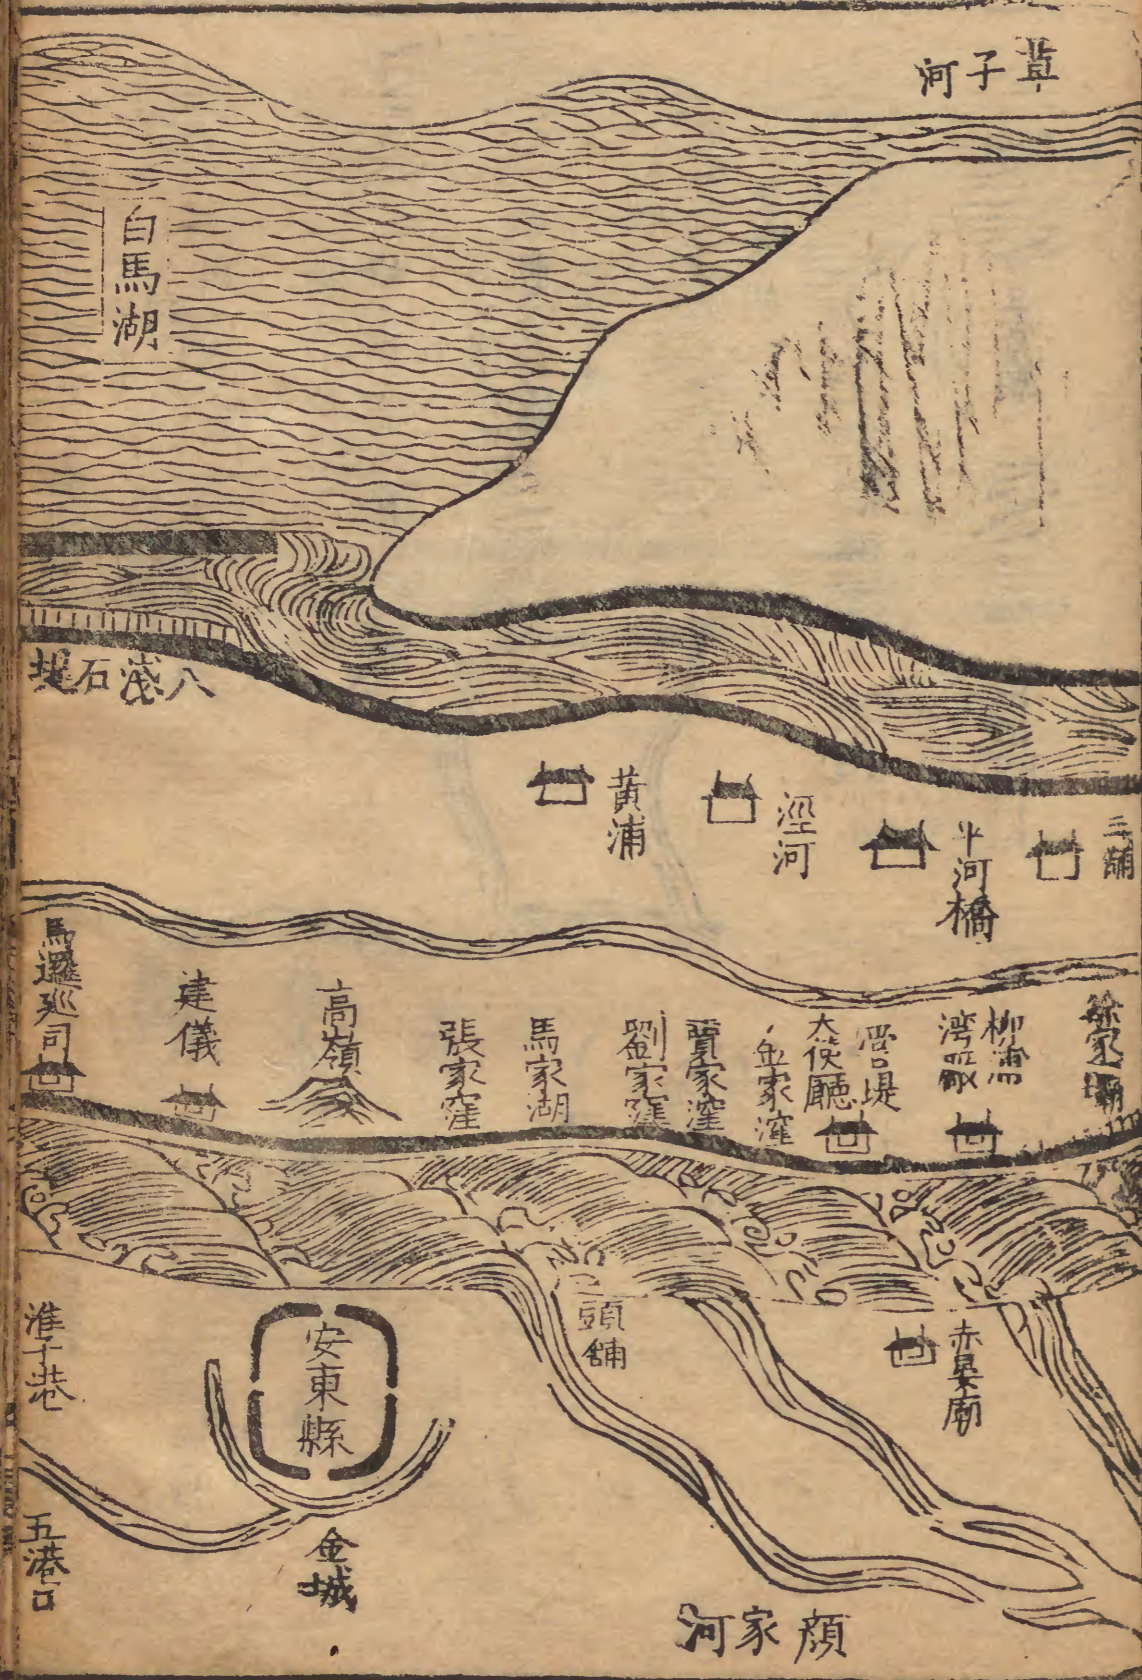 草子河
白馬湖
八淺石堤
三舖
平河橋
涇河
黃浦
徐家壩
柳浦
灣廠
營堤
大使廳
金家窪
賈家窪
劉家窪
馬家湖
張家窪
高嶺
建儀
馬邏廵司
赤晏廟
頭舖
安東縣
淮子巷
顏家河
金城
五港口